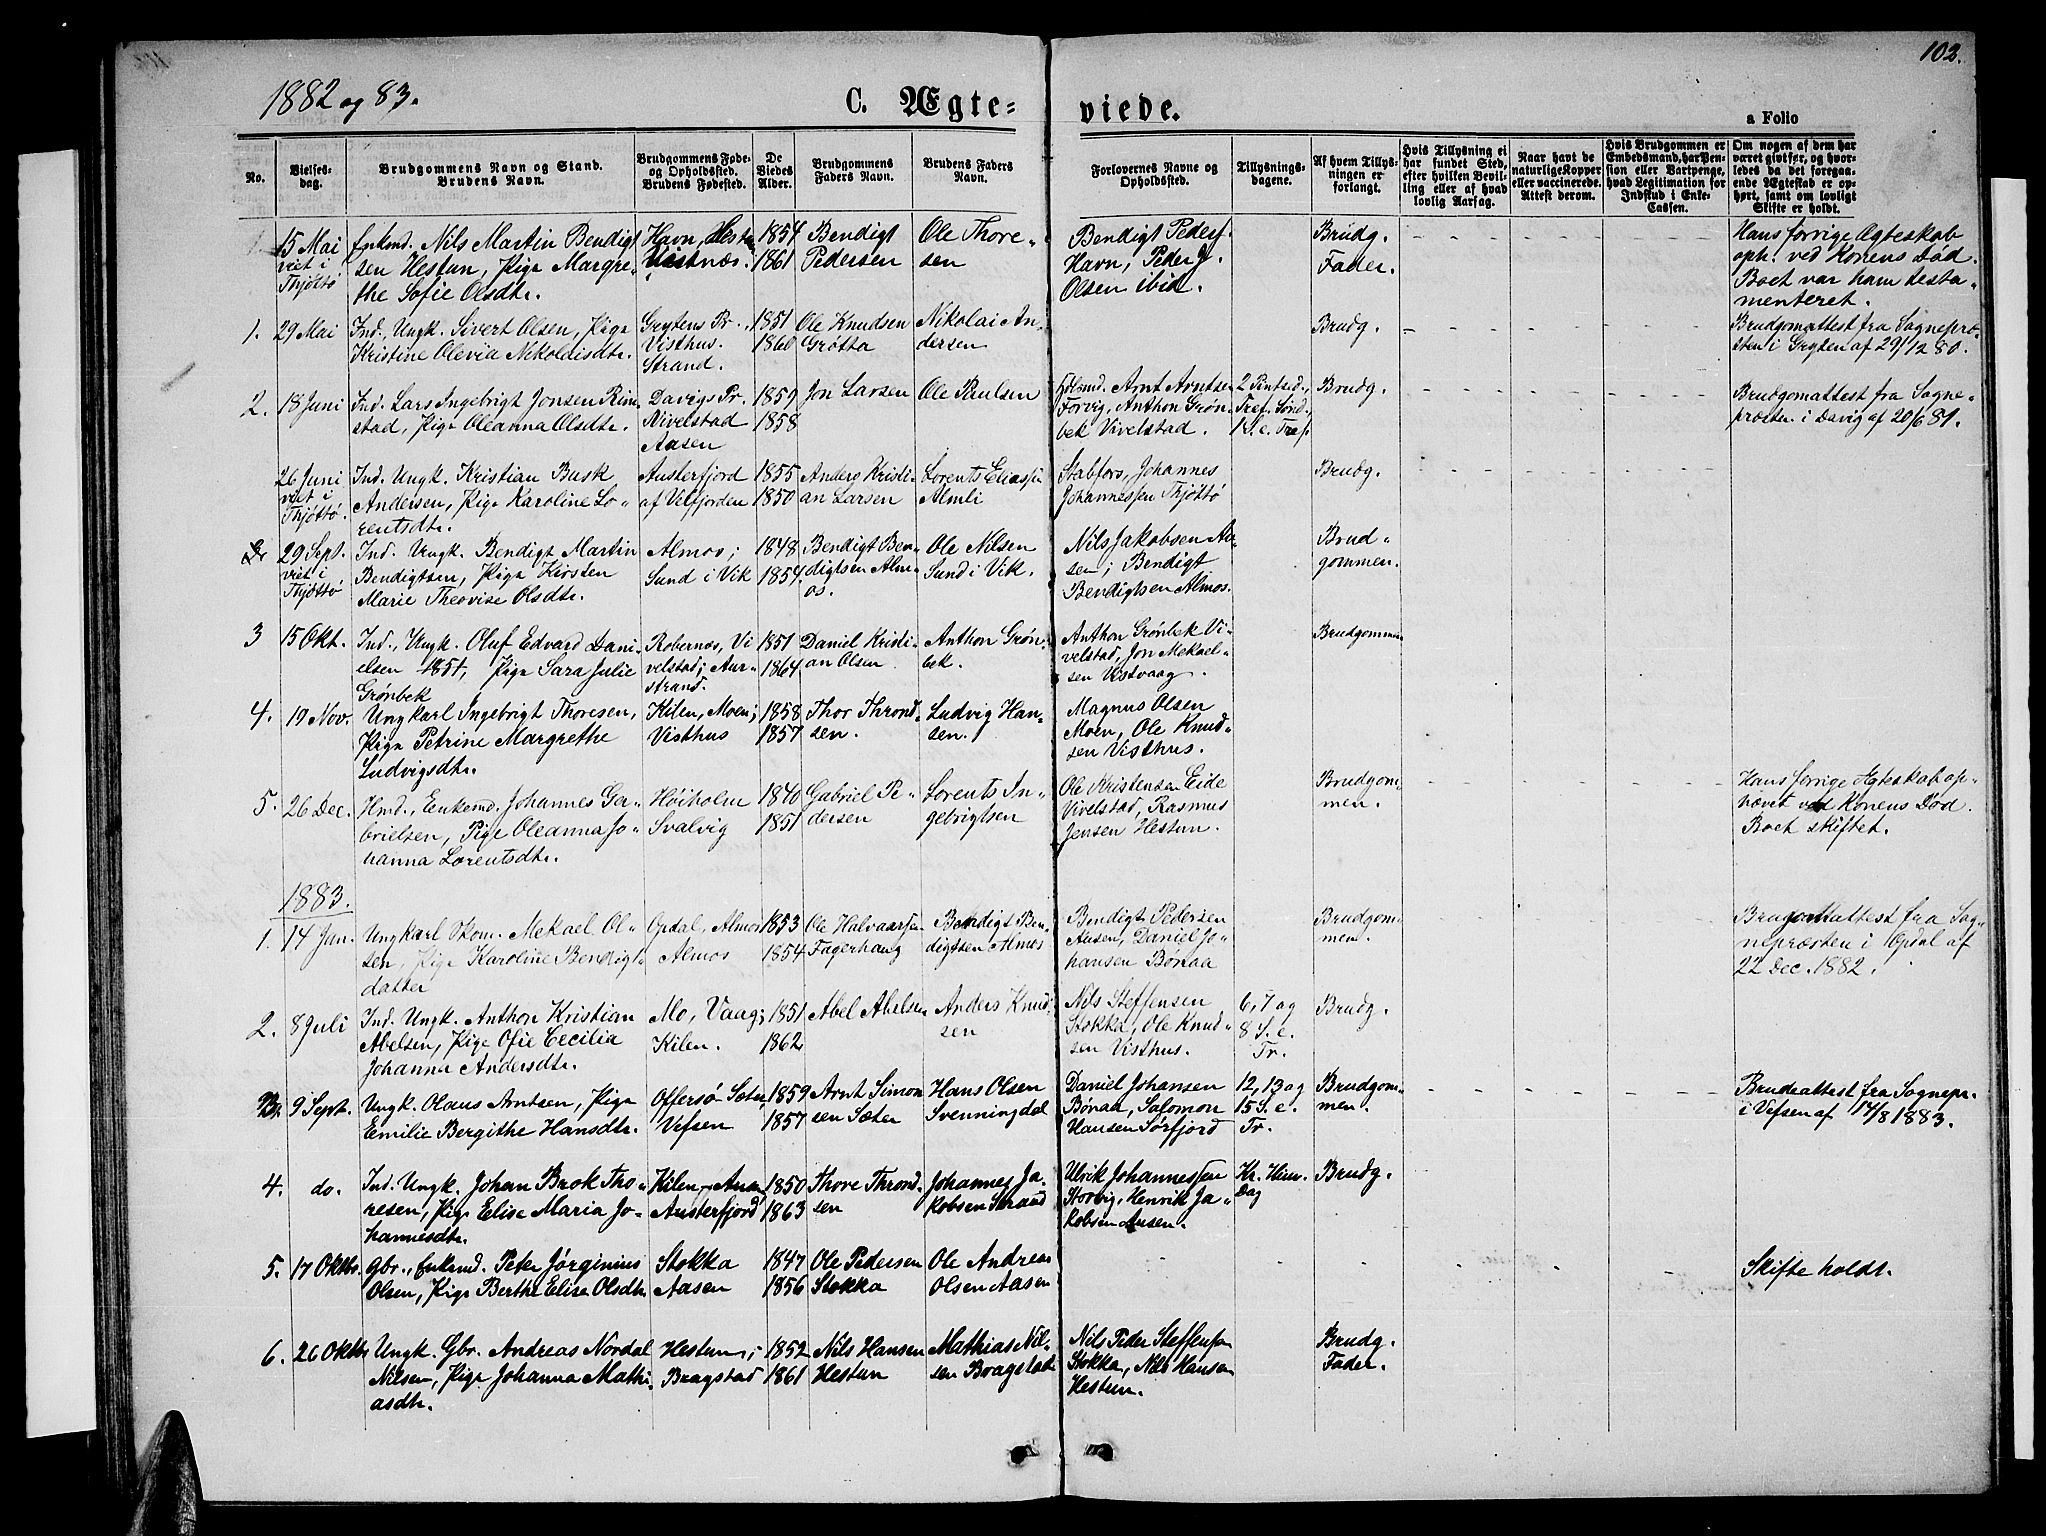 102.
1882 og 83.
C. Ægteviede.
a Folio
No.
Vielsesdag.
Brudgommens Navn og Stand.
Brudens Navn.
Brudgommens Føde-
og Opholdssted.
Brudens Fødested.
De
Viedes
Alder.
Brudgommens
Faders Navn.
Brudens Faders
Navn.
Forlovernes Navne og
Opholdssted.
Tillysnings-
dagene.
Af hvem Tillys-
ningen er
forlangt.
Hvis Tillysning ei
har fundet Sted,
efter hvilken Bevil-
ling eller af hvad
lovlig Aarsag.
Naar havt de
naturlige Kopper
eller vaccinerede.
Attest derom.
Hvis Brudgommen er
Embedsmand, har Pen-
sion eller Vartpenge,
hvad Legitimation for
Indskud i Enke-
Cassen.
Om nogen af dem har
været givt før, og hvor-
ledes da det foregaa-
ende Ægteskab er op-
hørt, samt om lovligt
Skifte er holdt.
15 Mai
viet i
Thjøttø
Enkmd. Nils Martin Bendigt
sen Hestun, Pige Margre-
the Sofie Olsdtr.
Havn, Hestun
Vestnæs.
1854
1861
Bendigt
Pedersen
Ole Thore-
sen
Bendigt Peders.
Havn, Peder
Olsen ibid.
Brudg.
Fader.
Hans forrige Ægteskab
oph. ved Konens Død.
Boet var ham testa-
menteret.
1. 29 Mai
Ind. Ungk. Sivert Olsen, Pige
Kristine Olevia Nikolaisdtr.
Grytens Pr.,
Visthus.
Strand.
1851
1860
Ole Knudsen
Grøtta
Nikolai An-
dersen
Brudg.
Brudgomattest fra Sognepræ-
sten i Gryten af 29/12 80.
2. 18 Juni
Ind. Lars Ingebrigt Jonsen Rim
stad, Pige Oleanna Olsdtr.
Davigs Pr.
Vivelstad
Aasen
1859
1858
Jon Larsen
Ole Paulsen
Arnt Arntsen
Forvig, Anthon Grøn-
bek Vivelstad.
2 Pintsed.,
Tref. Sønd.
1 S. e. Tref.
Brudg.
Brudgomattest fra Sogne-
præsten i Davig af 20/6 81.
26 Juni
viet i
Thjøttø.
Ind. Ungk. Kristian Busk
Andersen, Pige Karoline Lo-
rentsdtr.
Austerfjord
af Velfjorden
1855
1850
Anders Kristi-
an Larsen
Lorents Eliassen
Almli
Stabfors, Johannes
Johannessen Thjøttø
Brudg.
29 Sept.
viet i
Thjøttø
Ind. Ungk. Bendigt Martin
Bendigtsen, Pige Kirsten
Marie Theovise Olsdtr.
Almos;
Sund i Vik
1848
1854.
Bendigt Ben-
digtsen Alm-
os.
Ole Nilsen
Sund i Vik.
Nils Jakobsen Aa-
sen; Bendigt
Bendigtsen Almos.
Brud-
gommen.
3 15 Okt.
Ind., Ungk. Oluf Edvard Dani-
elsen 1851, Pige Sara Julie
Grønbek
Robernæs, Vi
velstad; Aur-
strand.
1851
1864
Daniel Kristi-
an Olsen
Anthon Grøn-
bek.
Anthon Grønbek Vi-
velstad, Jon Mekael-
sen Vistvaag.
Brudgommen
4. 19 Nov.
Ungkarl Ingebrigt Thoresen,
Pige Petrine Margrethe
Ludvigsdtr.
Kilen, Moen;
Visthus
1858
1857
Thor Thrond-
sen.
Ludvig Han-
sen.
Magnus Olsen
Moen, Ole Knud-
sen Visthus.
5. 26 Dec.
Hmd., Enkemd. Johannes Ga-
brielsen, Pige Oleanna Jo-
hanna Lorentsdtr.
Høiholm
Svalvig
1840
1851
Gabriel Pe-
dersen
Lorents In-
gebrigtsen
Ole Kristensen Eide
Vivelstad, Rasmus
Jensen Hestun.
Brudgom-
men.
Hans forrige Ægteskab op-
hævet ved Konens Død.
Boet skiftet.
1883.
1. 14 Jan.
Ungkarl Økon. Mekael Ol-
sen, Pige Karoline Bendigts-
datter
Opdal, Almos
Almos
1853
1854
Ole Halvaarsen
Fagerhaug
Bendigt Ben-
digtsen Almos
Bendigt Pedersen
Aasen, Daniel Jo-
hansen Bønaa
Brudgom-
men.
Brudgomattest fra Sog-
nepræsten i Opdal af
22 Dec. 1882.
2. 8 Juli
Ind. Ungk. Anthon Kristian
Abelsen, Pige Ofie Cecilia
Johanna Andersdtr.
Mo, Vaag;
Kilen.
1851
1862
Abel Abelsen
Anders Knud-
sen
Nils Steffensen
Stokka, Ole Knud-
sen Visthus.
6, 7 og
8 S. e.
Tr.
Brudg.
3. 9 Sept.
Ungk. Olaus Arntsen, Pige
Emilie Bergithe Hansdtr.
Offersø Sæter,
Vefsen
1859
1857
Arnt Simon
sen Sæter
Hans Olsen
Svenningdal
Daniel Johansen
Bønaa, Salomon
Hansen Sørfjord
12, 13 og
15 S. e.
Tr.
Brudgom-
men.
Brudeattest fra Sognepr.
i Vefsen af 14/8 1883.
4. do.
Ind. Ungk. Johan Brok Tho-
resen, Pige Elise Maria Jo-
hannesdtr.
Kilen,
Austerfjord
1850
1863
Thore Thrond-
sen
Johannes Ja-
kobsen Straad
Ulrik Johannessen
Storvig, Henrik Ja-
kobsen Aasen.
Kr. Him.
Dag
Brudg.
5. 17 Oktbr.
Gbr., Enkmd. Peter Jørginius
Olsen, Pige Berthe Elise Olsdtr.
Stokka
Aasen
1847
1856
Ole Pedersen
Stokka
Ole Andreas
Olsen Aasen
Skifte holdt.
6. 26 Oktbr
Ungk. Gbr. Andreas Nordal
Nilsen, Pige Johanna Mathi-
asdtr.
Hestun;
Bragstad
1852
1861
Nils Hansen
Hestun
Mathias Nil-
sen Bragstad
Nils Peder Steffensen
Stokka, Nils Hansen
Hestun.
Brudg.
Fader.